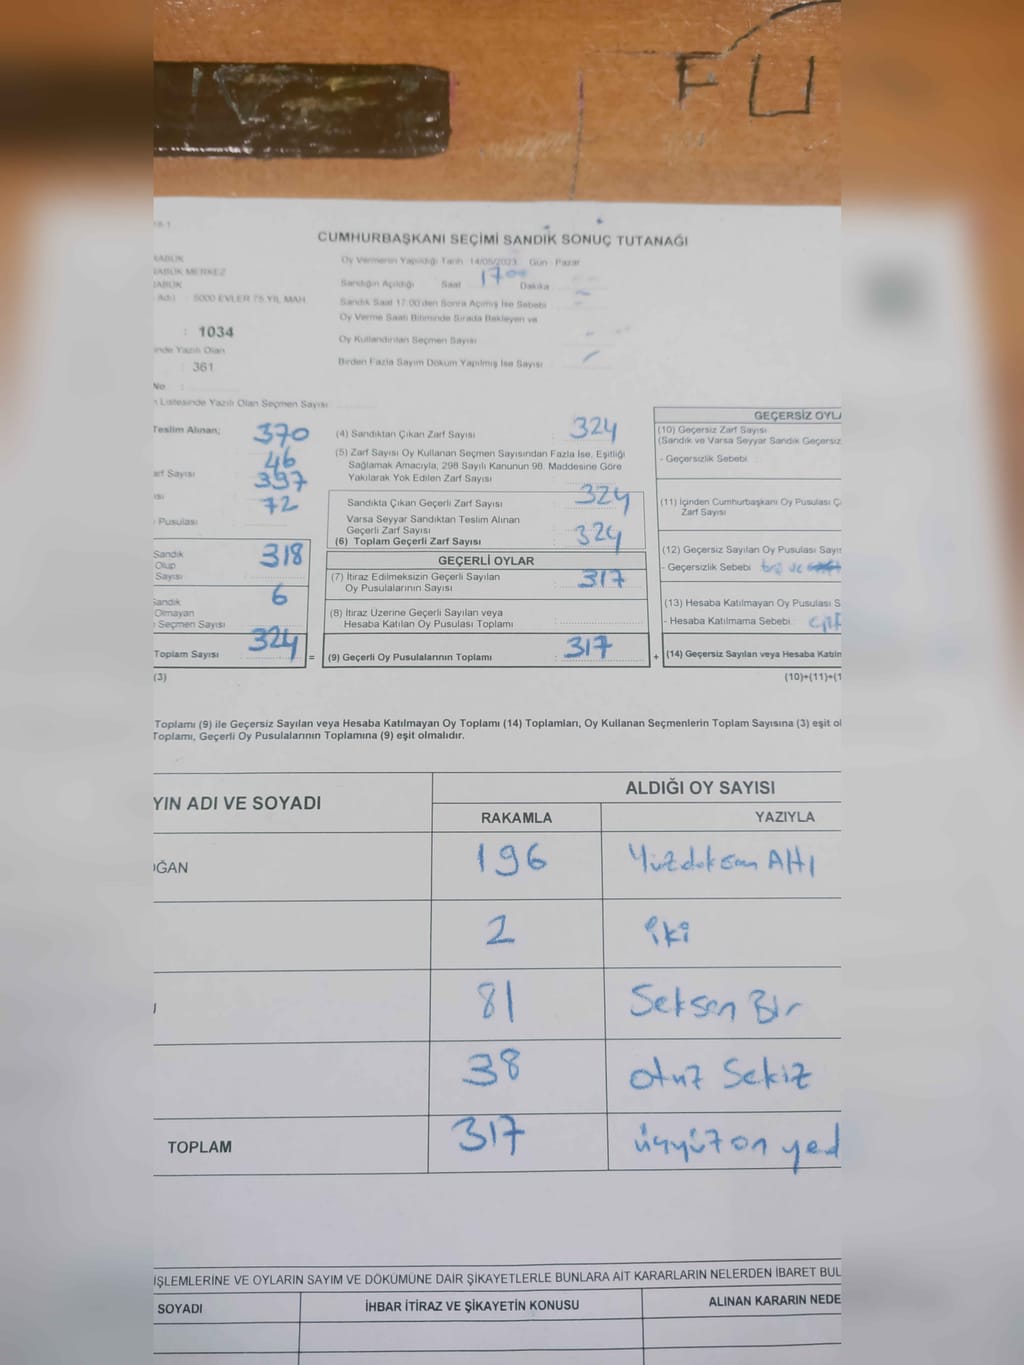 FU
CUMHURBAŞKANI SEÇİMİ SANDIK SONUÇ TUTANAĞI
Oy Vermenin Yapıldığı Tarih 14/05/2023 Gün : Pazar
MERKEZ
Sandığın Açıldığı Saat 17 00 Dakika
5000 EVLER 75.YIL MAH.
Sandık Saat 17:00'den Sonra Açılmış İse Sebebi
Oy Verme Saati Bitiminde Sırada Bekleyen ve
: 1034
Oy Kullandırılan Seçmen Sayısı
inde Yazılı Olan
: 361
Birden Fazla Sayım Döküm Yapılmış İse Sayısı
No :
n Listesinde Yazılı Olan Seçmen Sayısı
Teslim Alınan; 370
46
arf Sayısı 397
ısı 72
Pusulası
Sandık
Olup
Sayısı 318
Sandık
Olmayan
Seçmen Sayısı 6
Toplam Sayısı 324
(3)
=
(4) Sandıktan Çıkan Zarf Sayısı : 324
(5) Zarf Sayısı Oy Kullanan Seçmen Sayısından Fazla İse, Eşitliği
Sağlamak Amacıyla, 298 Sayılı Kanunun 98. Maddesine Göre
Yakılarak Yok Edilen Zarf Sayısı
Sandıkta Çıkan Geçerli Zarf Sayısı : 324
Varsa Seyyar Sandıktan Teslim Alınan
Geçerli Zarf Sayısı
(6) Toplam Geçerli Zarf Sayısı : 324
GEÇERLİ OYLAR
(7) İtiraz Edilmeksizin Geçerli Sayılan
Oy Pusulalarının Sayısı : 317
(8) İtiraz Üzerine Geçerli Sayılan veya
Hesaba Katılan Oy Pusulası Toplamı :
(9) Geçerli Oy Pusulalarının Toplamı : 317
+
GEÇERSİZ OYLA
(10) Geçersiz Zarf Sayısı
(Sandık ve Varsa Seyyar Sandık Geçersiz
- Geçersizlik Sebebi :
(11) İçinden Cumhurbaşkanı Oy Pusulası Ç
Zarf Sayısı
(12) Geçersiz Sayılan Oy Pusulası Sayıs
- Geçersizlik Sebebi :
(13) Hesaba Katılmayan Oy Pusulası S
- Hesaba Katılmama Sebebi :
(14) Geçersiz Sayılan veya Hesaba Katılm
(10)+(11)+(1
Toplamı (9) ile Geçersiz Sayılan veya Hesaba Katılmayan Oy Toplamı (14) Toplamları, Oy Kullanan Seçmenlerin Toplam Sayısına (3) eşit ol
Toplamı, Geçerli Oy Pusulalarının Toplamına (9) eşit olmalıdır.
YIN ADI VE SOYADI
ALDIĞI OY SAYISI
RAKAMLA YAZIYLA
OĞAN 196 Yüzdoksan Altı
2 iki
U 81 Seksen Bir
38 otuz Sekiz
TOPLAM 317 üçyüz on yed
İŞLEMLERİNE VE OYLARIN SAYIM VE DÖKÜMÜNE DAİR ŞİKAYETLERLE BUNLARA AİT KARARLARIN NELERDEN İBARET BUL
SOYADI İHBAR İTİRAZ VE ŞİKAYETİN KONUSU ALINAN KARARIN NEDE